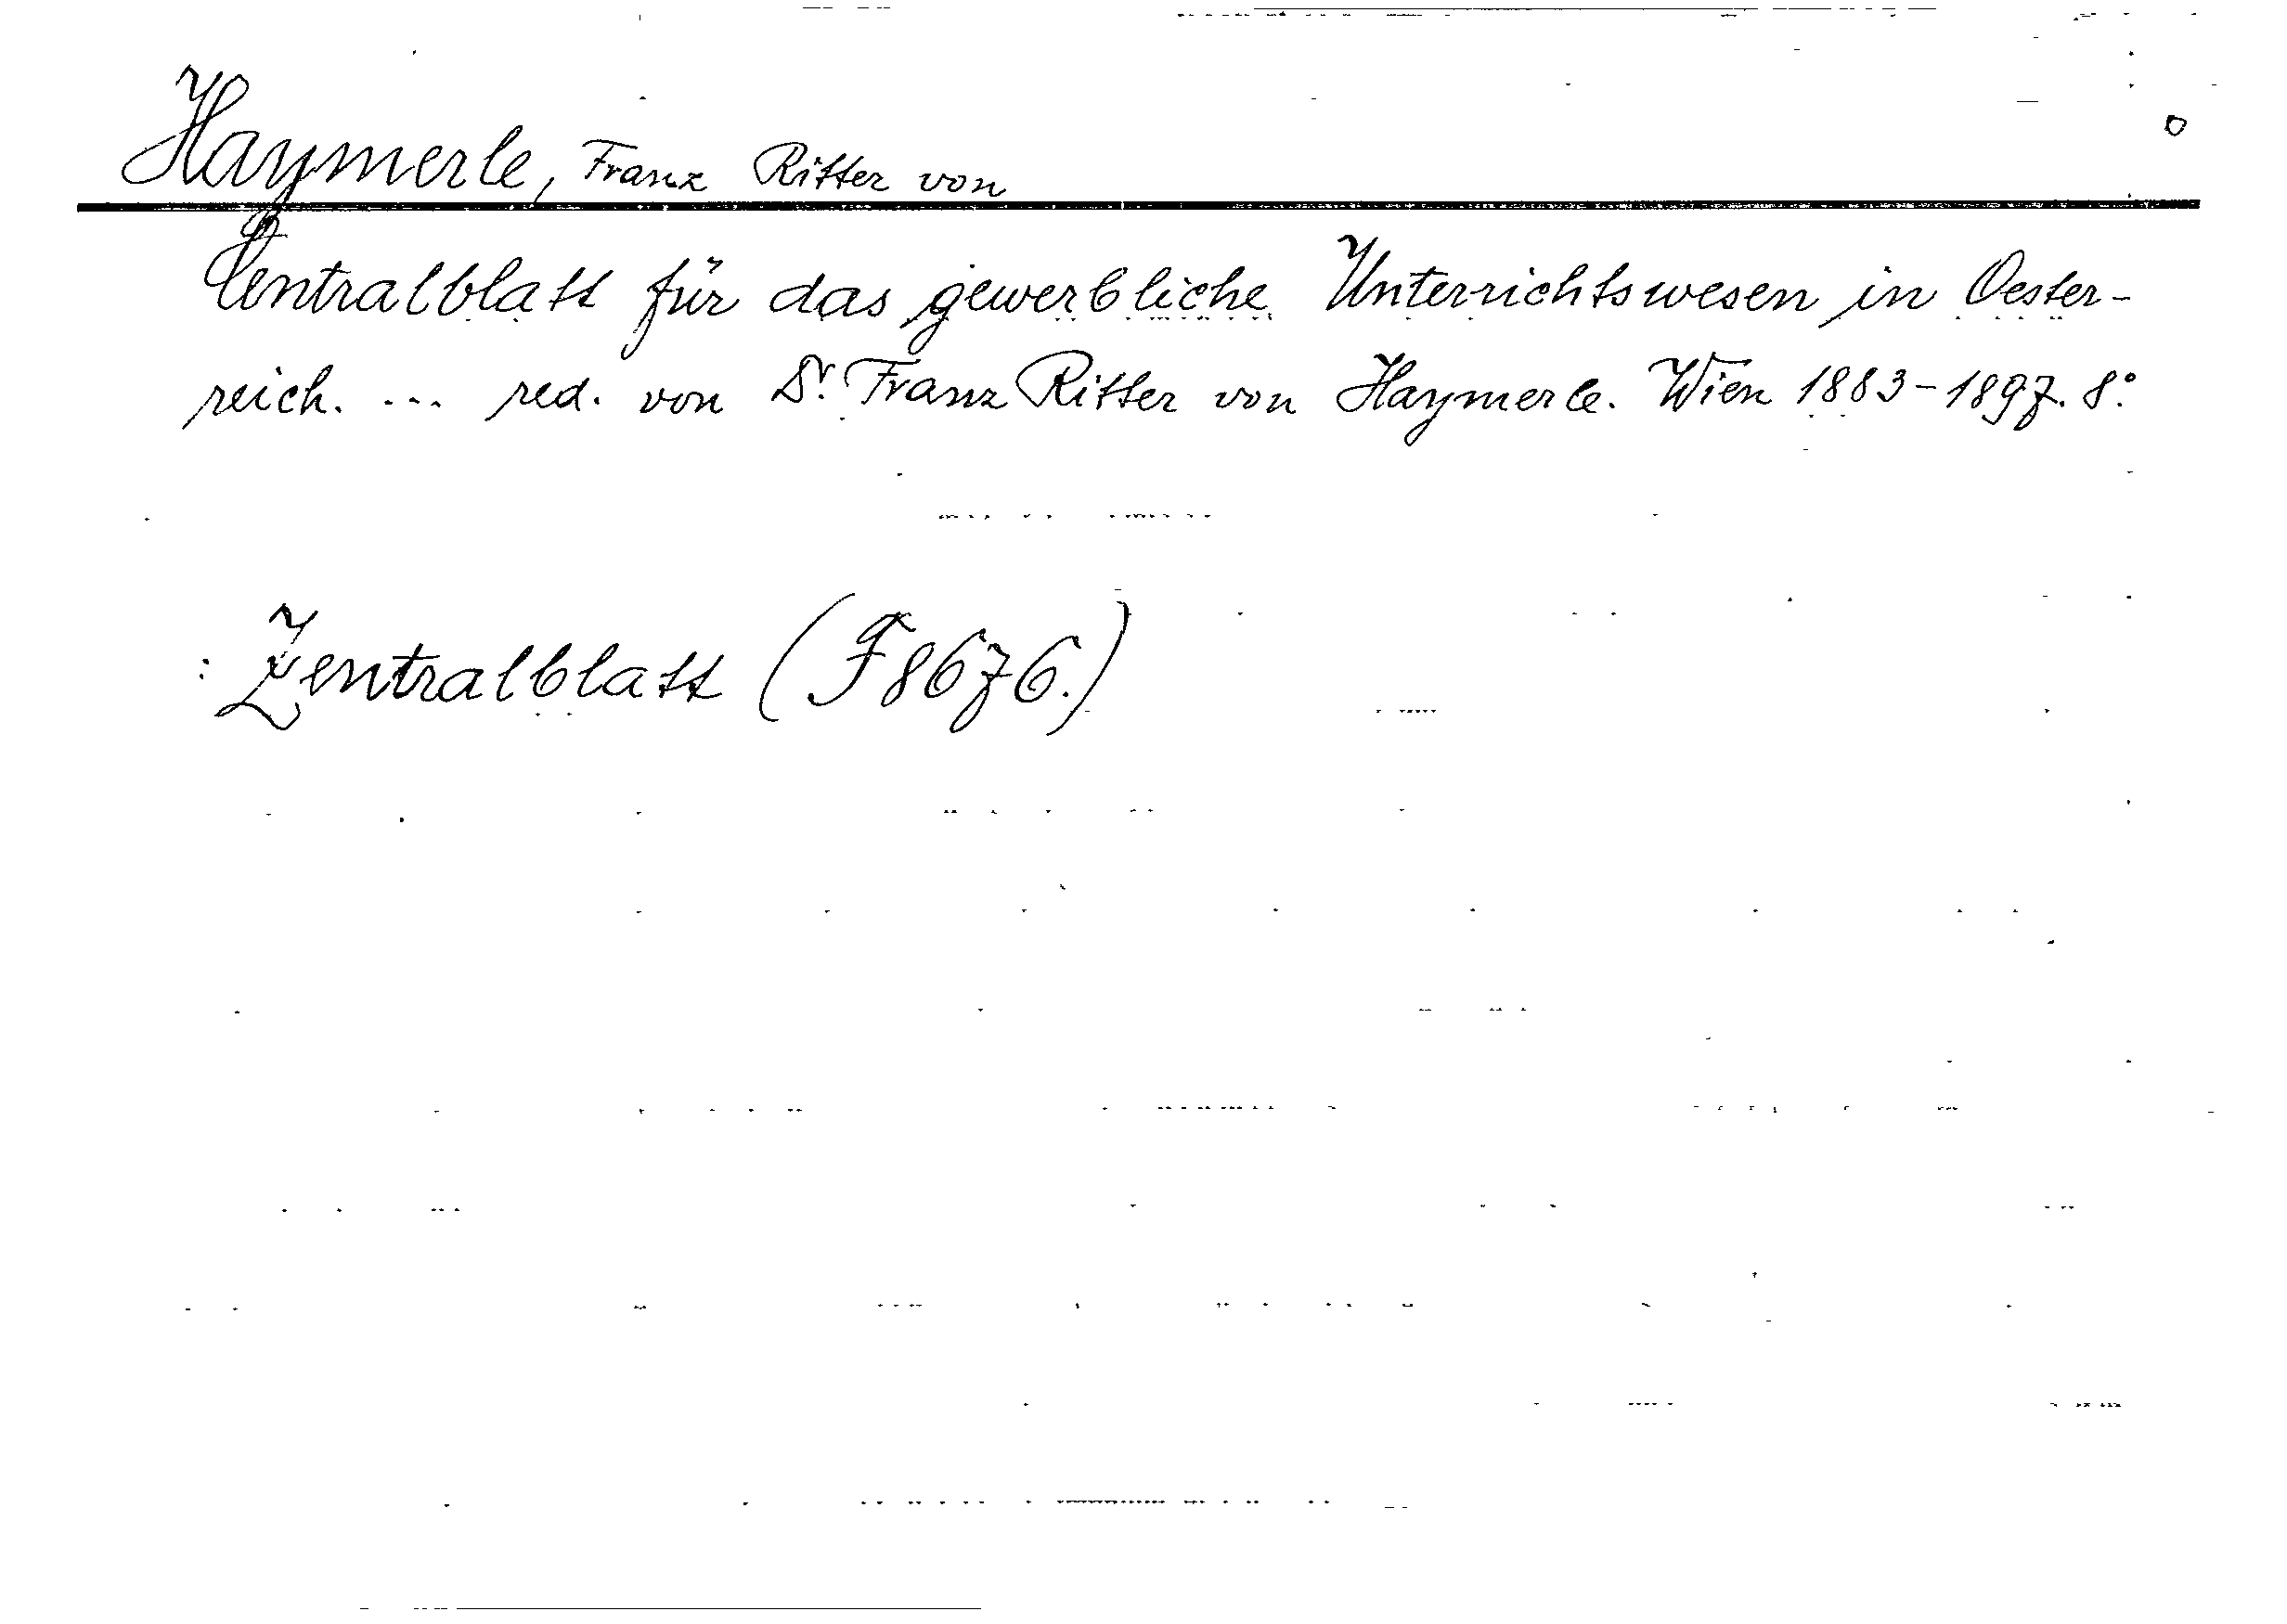 Haymerle, Franz Ritter von
Centralblatt für das gewerbliche Unterrichtswesen in Oester-
reich. ... red. von Dr. Franz Ritter von Haymerle. Wien 1883-1897. 8°.
: Zentralblatt (F 8676.)